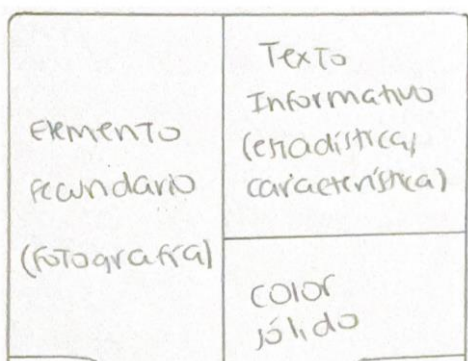 Elemento
secundario
(fotografía)
Texto
Informativo
(estadística/
característica)
color
sólido